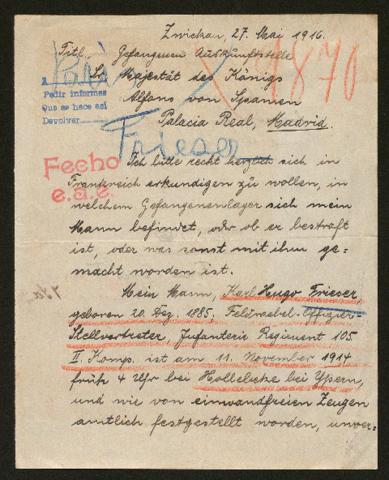 Zwickau, 27. Mai 1916.
Titl. Gefangenen Auskunftstelle
Sr. Majestät des Königs
Alfons von Spanien
Palacia Real, Madrid.
1870
A Paris
Pedir informes
Que se hace así
Devolver
Frieser
Fecho
e.a.e.
Ich bitte recht herzlich sich in
Frankreich erkundigen zu wollen, in
welchem Gefangenenlager sich mein
Mann befindet, oder ob er bestraft
ist, oder was sonst mit ihm ge-
macht worden ist.
Mein Mann, Karl Hugo Frieser,
geboren 20. Dez. 1885. Feldwebel-Offizier-
Stellvertreter Infanterie Regiment 105
II. Komp. ist am 11. November 1914
früh 4 Uhr bei Hollebeke bei Ypern,
und wie von einwandfreien Zeugen
amtlich festgestellt worden, unver-